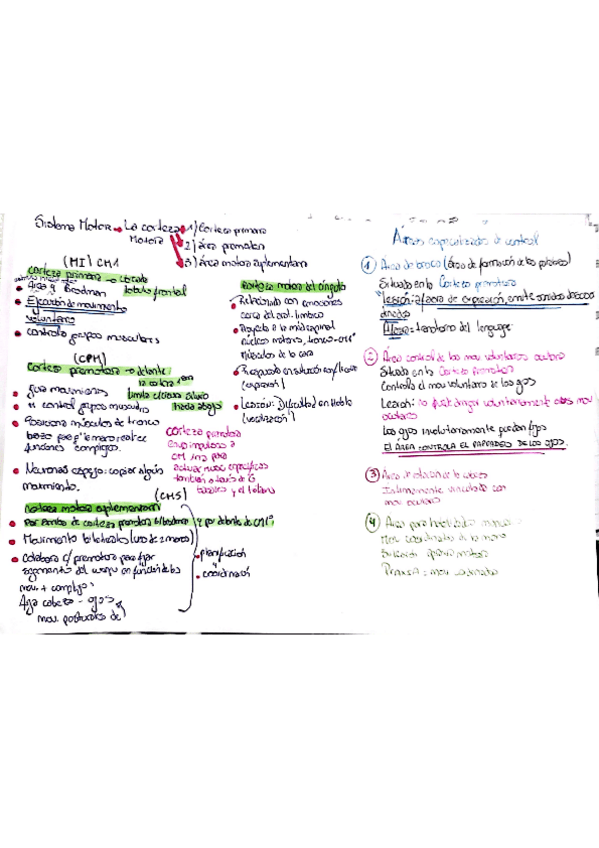 Sistema Motor → La corteza Motora
1) Corteza primaria
2) área premotora
3) área motora suplementaria
(MI) CM1
corteza primaria → ubicada
lóbulo frontal
Area 4 Brodman
Ejecución de movimiento
voluntarios
controla grupos musculares
(CPM)
Corteza premotora → delante
la corteza 1ria
guía movimientos
limita c/cisura silvio
hacia abajo
" control grupos muscules
Posiciona músculos de tronco
brazo para q' la mano realice
funciones complejas.
Neuronas espejo: copiar algún
movimiento.
corteza premotora
envía impulsos a
CM 1ria para
activar musc específicas
también a través de G
basales y el tálamo
(CMS)
Corteza motora suplementaria
Por encima de corteza premotora
y por delante de CM1°
Movimiento bilaterales (uso de 2 manos)
Colabora c/ premotora para fijar
segmentos del cuerpo en función de los
mov. + complejos
cabeza - ojos
mov. posturales de
planificación
y
coordinación
corteza motora del cíngulo
Relacionado con emociones
cerca del sist. límbico
Proyecta a la médula espinal
núcleos motores, tronco
Músculos de la cara
(expresión)
Lesión: Dificultad en Habla
(vocalización)
Áreas especializadas de control
1 Area de broca (área de formación de las palabras)
Situada en la Corteza premotora
Lesión: afasia de expresión, emite sonidos
Afasia: transtorno del lenguaje
2 Area control de los mov voluntarios oculares
Situada en la Corteza Premotora
Controla el mov voluntario de los ojos
Lesión: no puede dirigir voluntariamente los mov
oculares
Los ojos involuntariamente quedan fijos
EL AREA CONTROLA EL PARPADEO DE LOS OJOS.
3 Area de rotacion de la cabeza
Intimamente vinculada con
mov oculares
4 Area para habilidades manuales
Mov coordinados de la mano
mov ordinados